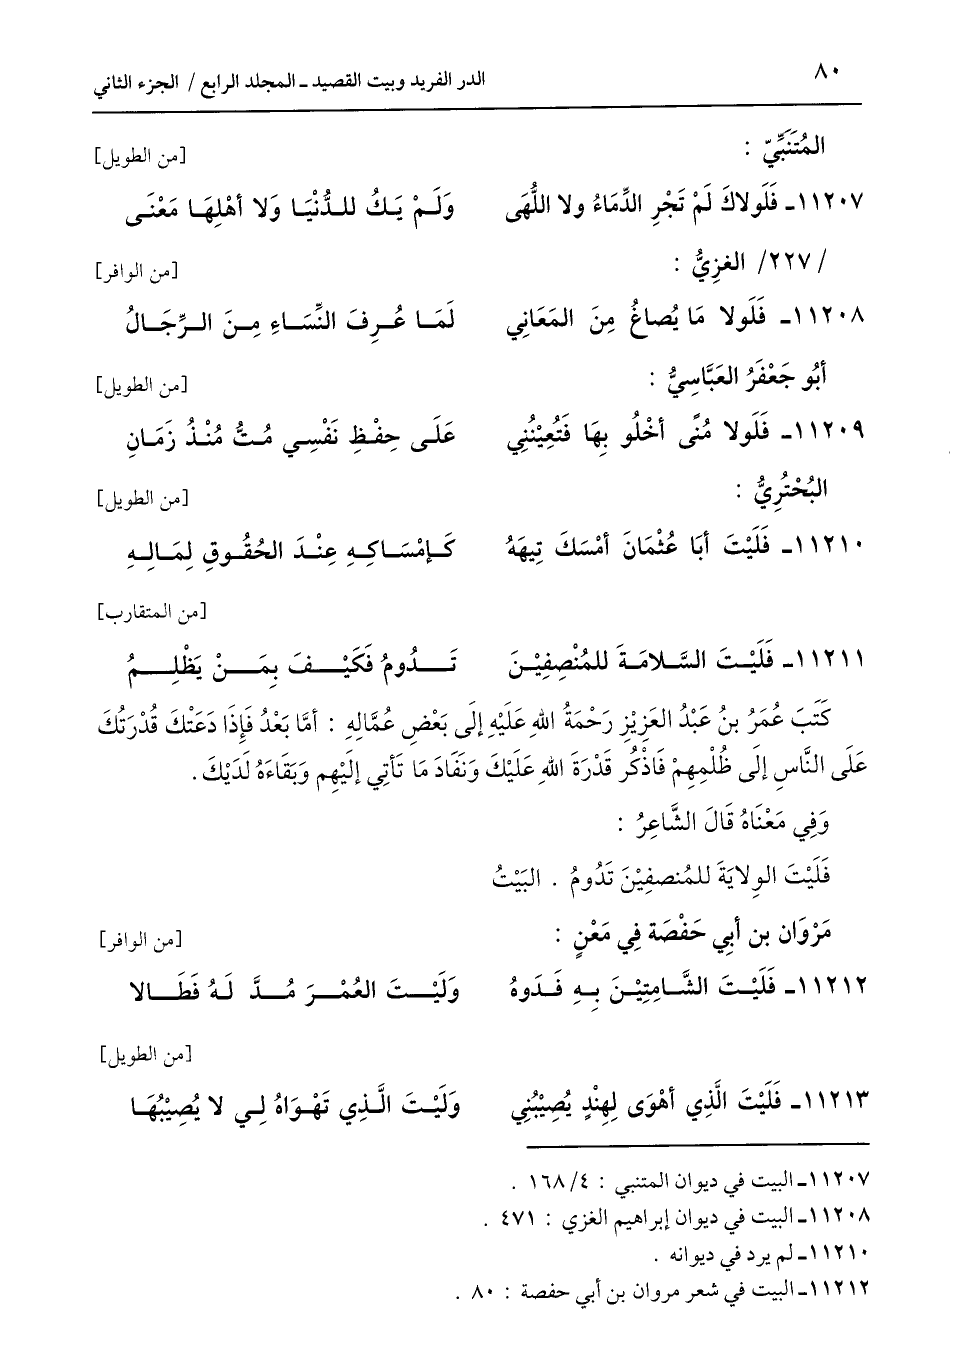 ٨٠ الدر الفريد وبيت القصيد ـ المجلد الرابع / الجزء الثاني
المُتَنَبِّيّ : [من الطويل]
١١٢٠٧ـ فَلَولاكَ لَمْ تَجْرِ الدِّمَاءُ ولا اللُّهَى وَلَمْ يَكُ للدُّنْيَا وَلا أهْلِهَا مَعْنَى
/٢٢٧/ الغزِيُّ : [من الوافر]
١١٢٠٨ـ فَلَولا مَا يُصاغُ مِنَ المَعَانِي لَمَا عُرِفَ النِّسَاءِ مِنَ الرِّجَالُ
أبُو جَعْفَرُ العَبَّاسِيُّ : [من الطويل]
١١٢٠٩ـ فَلَولا مُنًى أخْلُو بِهَا فَتُعِيْنُنِي عَلَى حِفْظِ نَفْسِي مُتُّ مُنْذُ زَمَانِ
البُحْتُرِيُّ : [من الطويل]
١١٢١٠ـ فَلَيْتَ أبَا عُثْمَانَ أمْسَكَ تِيهَهُ كَإمْسَاكِهِ عِنْدَ الحُقُوقِ لِمَالِهِ
[من المتقارب]
١١٢١١ـ فَلَيْتَ السَّلامَةَ للمُنْصِفِيْنَ تَدُومُ فَكَيْفَ بِمَنْ يَظْلِمُ
كَتَبَ عُمَرُ بنُ عَبْدُ العَزِيْزِ رَحْمَةُ اللهِ عَلَيْهِ إلَى بَعْضِ عُمَّالِهِ : أمَّا بَعْدُ فَإذَا دَعَتْكَ قُدْرَتُكَ
عَلَى النَّاسِ إلَى ظُلْمِهِمْ فَاذْكُر قدْرَةَ اللهِ عَلَيْكَ وَنفَادَ مَا تَأتِي إلَيْهِم وَبَقَاءَهُ لَدَيْكَ .
وَفِي مَعْنَاهُ قَالَ الشَّاعِرُ :
فَلَيْتَ الوِلايَةَ للمُنصفِيْنَ تَدُومُ . البَيْتُ
مَرْوَان بن أبي حَفْصَة فِي مَعْنٍ : [من الوافر]
١١٢١٢ـ فَلَيْتَ الشَّامِتِيْنَ بِهِ فَدَوهُ وَلَيْتَ العُمْرَ مُدَّ لَهُ فَطَالا
[من الطويل]
١١٢١٣ـ فَلَيْتَ الَّذِي أهْوَى لِهِنْدٍ يُصِيْبُنِي وَلَيْتَ الَّذِي تَهْوَاهُ لِي لا يُصِيْبُهَا
١١٢٠٧ـ البيت في ديوان المتنبي : ٤/ ١٦٨ .
١١٢٠٨ـ البيت في ديوان إبراهيم الغزي : ٤٧١ .
١١٢١٠ـ لم يرد في ديوانه .
١١٢١٢ـ البيت في شعر مروان بن أبي حفصة : ٨٠ .